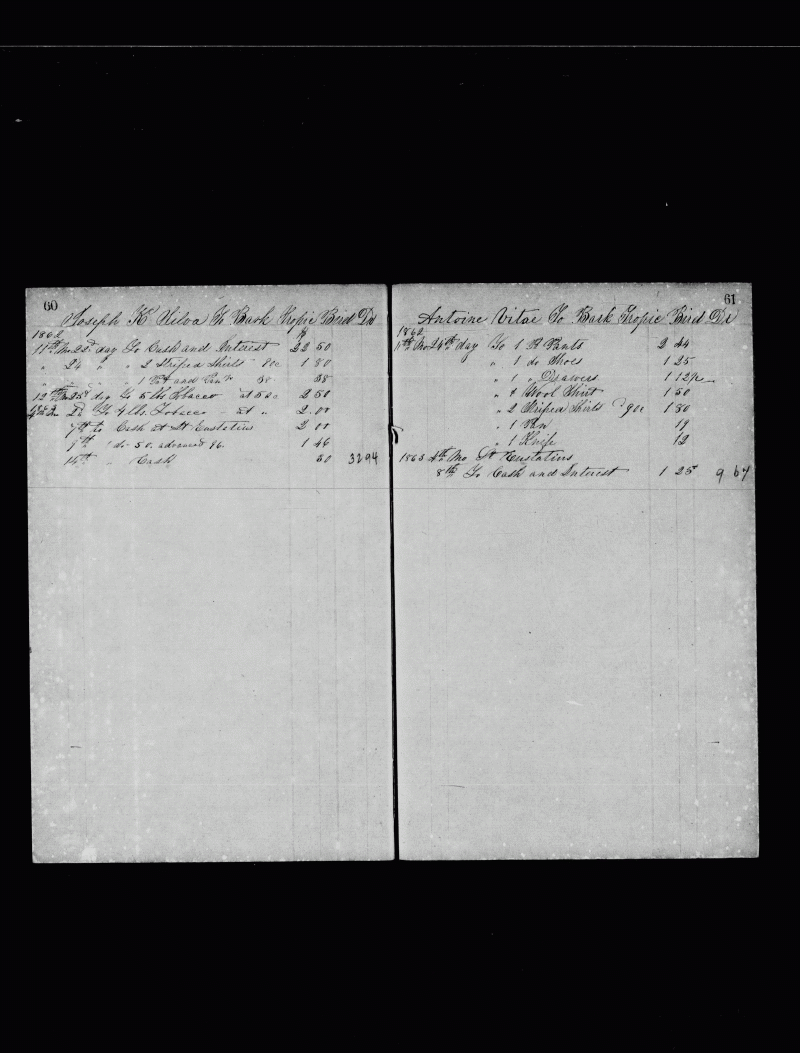 60
Joseph K Silva To Bark Tropic Bird Dr
1862
11th Mo 22d day To Cash and Interest 22 50
" 24 " " 2 Striped Shirts 90c 1 80
" " " 1 and Pan 38 38
12th Mo 25th day To 5 lbs Tobacco at 50c 2 50
2d To 4 lbs Tobacco - 50 " 2.00
7th to Cash at St Eustatius 2 00
9th do - 50. advanced 96. 1 46
14th " Cash 30 32 94
61
Antoine Vitae To Bark Tropic Bird Dr
1862
11th Mo 24th day To 1 P Pants 2 44
" 1 do Shoes 1 25
" 1 " Drawers 1 12½
" 1 Wool Shirt 1 50
" 2 Striped Shirts 90c 1 80
" 1 Pan 19
" 1 Knife 12
1863 4th Mo St Eustatius
8th To Cash and Interest 1 25 9 67